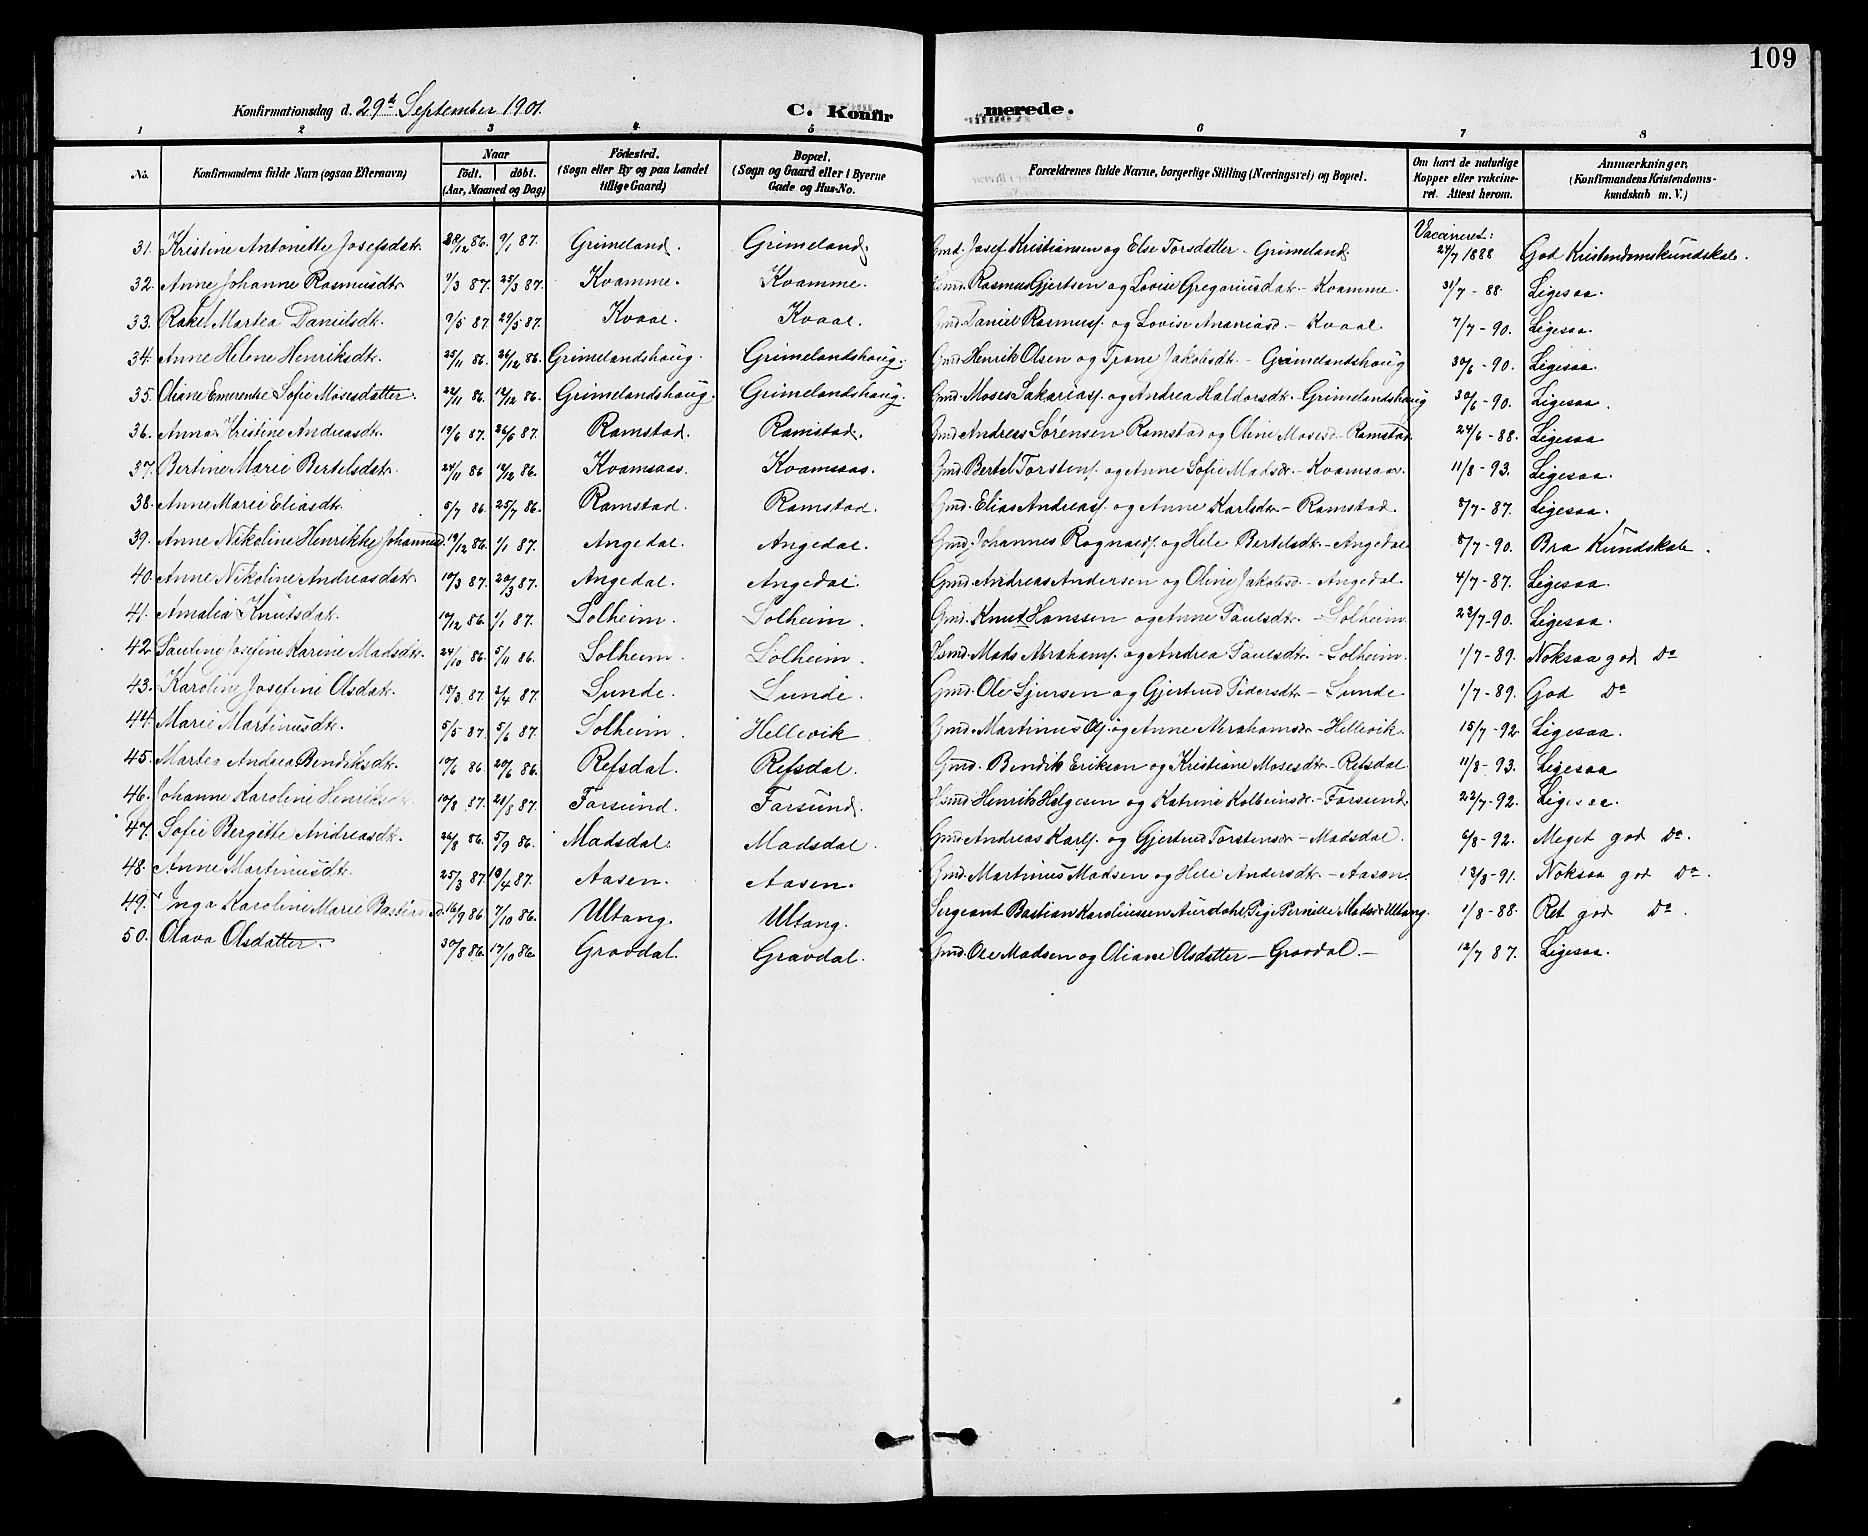 109
Konfirmationsdag d. 29de September 1901.
C. Konfirmerede.
1 2 3 4 5 6 7 8
No. Konfirmandens fulde Navn (ogsaa Efternavn) Naar født. døbt. (Aar, Maaned og Dag) Födested. (Sogn eller By og paa Landet tillige Gaard) Bopæl. (Sogn og Gaard eller i Byerne Gade og Hus-No. Forældrenes fulde Navne, borgerlige Stilling (Næringsvei) og Bopæl. Om havt de naturlige Kopper eller vakcineret. Attest herom. Anmærkninger. (Konfirmandens Kristendomskundskab m. V.)
Vaccineret:
31. Kristine Antonette Josefsdatr. 28/12 86. 9/1 87. Grimeland. Grimeland. Gmd. Josef Kristiansen og Else Torsdatter - Grimeland. 24/7 1888 God Kristendomskundskab.
32. Anne Johanne Rasmusdtr. 9/3 87. 25/3 87. Kvamme. Kvamme. Hsmd. Rasmus Gjertsen og Lovise Gregoriusdatr. - Kvamme. 31/7 - 88. Ligesaa.
33. Rakel Martea Danielsdt. 9/5 87. 29/5 87. Kvaal. Kvaal. Gmd. Daniel Rasmusf. og Lovise Ananiasd. - Kvaal. 7/7 - 90. Ligesaa.
34. Anne Helene Henriksdtr. 25/11 86. 26/12 86. Grimelandshaug. Grimelandshaug. Gmd. Henrik Olsen og Trone Jakobsdt. - Grimelandshaug 30/6 - 90. Ligesaa.
35. Oliane Emerentse Sofie Mosesdatter. 22/11 86. 12/12 86. Grimelandshaug. Grimelandshaug. Gmd. Moses Sakariasf. og Andrea Haldorsdt. - Grimelandshaug 30/6 - 90. Ligesaa.
36. Anna Kristine Andreasdt. 19/6 87. 26/6 87. Ramstad. Ramstad. Gmd. Andreas Sørensen Ramstad og Oline Mosesd. - Ramstad. 24/6 - 88. Ligesaa
37. Bertine Marie Bertelsdatr. 24/11 86 19/12 86. Kvamsaas. Kvamsaas. Gmd. Bertel Torstenf. og Anne Sofie Madsdr. - Kvamsaas. 11/8 - 93. Ligesaa.
38. Anne Marie Eliasdtr. 5/7 86. 25/7 86. Ramstad. Ramstad. Gmd. Elias Andreasf. og Anne Karlsdr. - Ramstad. 8/7 - 87. Ligesaa.
39. Anne Nikoline Henrikke Johannesd. 19/12 86. 1/1 87. Angedal. Angedal. Gmd. Johannes Rognaldf. og Hele Bertelsdt. - Angedal 8/7 - 90. Bra Kundskab.
40. Anne Nikoline Andreasdatr. 10/3 87. 20/3 87. Angedal. Angedal. Gmd. Andreas Andersen og Oline Jakobsd. - Angedal. 4/7 - 87. Ligesaa.
41. Amalia Knutsdatr. 17/12 86. 1/1 87. Solheim. Solheim. Gmd. Knut Hanssen og Anne Paulsdtr. - Solheim. 22/7 - 90. Ligesaa.
42. Pauline Josefine Karine Madsdtr. 24/10 86. 5/11 86. Solheim. Solheim. Hsmd. Mads Abrahamf. og Andrea Paulsdtr. - Solheim. 1/7 - 89. Noksaa god Do
43. Karoline Josefine Olsdatr. 15/3 87. 2/4 87. Sunde. Sunde. Gmd. Ole Sjursen og Gjertrud Pedersdtr. - Sunde 1/7 - 89. God Do
44. Marie Martinusdtr. 5/5 87. 5/6 87. Solheim. Hellevik. Gmd. Martinus Olf. og Anne Abrahamsdr. - Hellevik. 15/7 - 92. Ligesaa.
45. Martea Andrea Bendiksdtr. 10/6 86. 20/6 86. Refsdal. Refsdal. Gmd. Bendik Eriksen og Kristiane Mosesdtr. - Refsdal 11/8 - 93. Ligesaa
46. Johanne Karoline Henriksdr. 10/8 87. 21/8 87. Farsund. Farsund. Hsmd. Henrik Helgesen og Katrine Kolbeinsdr. - Farsund. 22/7 - 92. Ligesaa.
47. Sofie Bergitte Andreasdt. 26/8 86. 5/9 86. Madsdal. Madsdal. Gmd. Andreas Karlf. og Gjertrud Torstensdr. - Madsdal. 6/8 - 92. Meget god Do.
48. Anne Martinusdtr. 25/3 87. 10/4 87. Aasen. Aasen. Gmd. Martinus Madsen og Hele Andersdt. - Aasen. 12/8 - 91. Noksaa god Do.
49. Inga Karoline Marie Bastiansd. 16/9 86. 7/10 86. Ultang. Ultang. Sergeant Bastian Karoliussen Aurdahl, Pige Pernille Madsdr. Ultang. 1/8 - 88. Ret god Do.
50. Olava Olsdatter. 30/8 86. 17/10 86. Gravdal. Gravdal. Gmd. Ole Madsen og Oliane Olsdatter - Gravdal. - 12/7 87. Ligesaa.